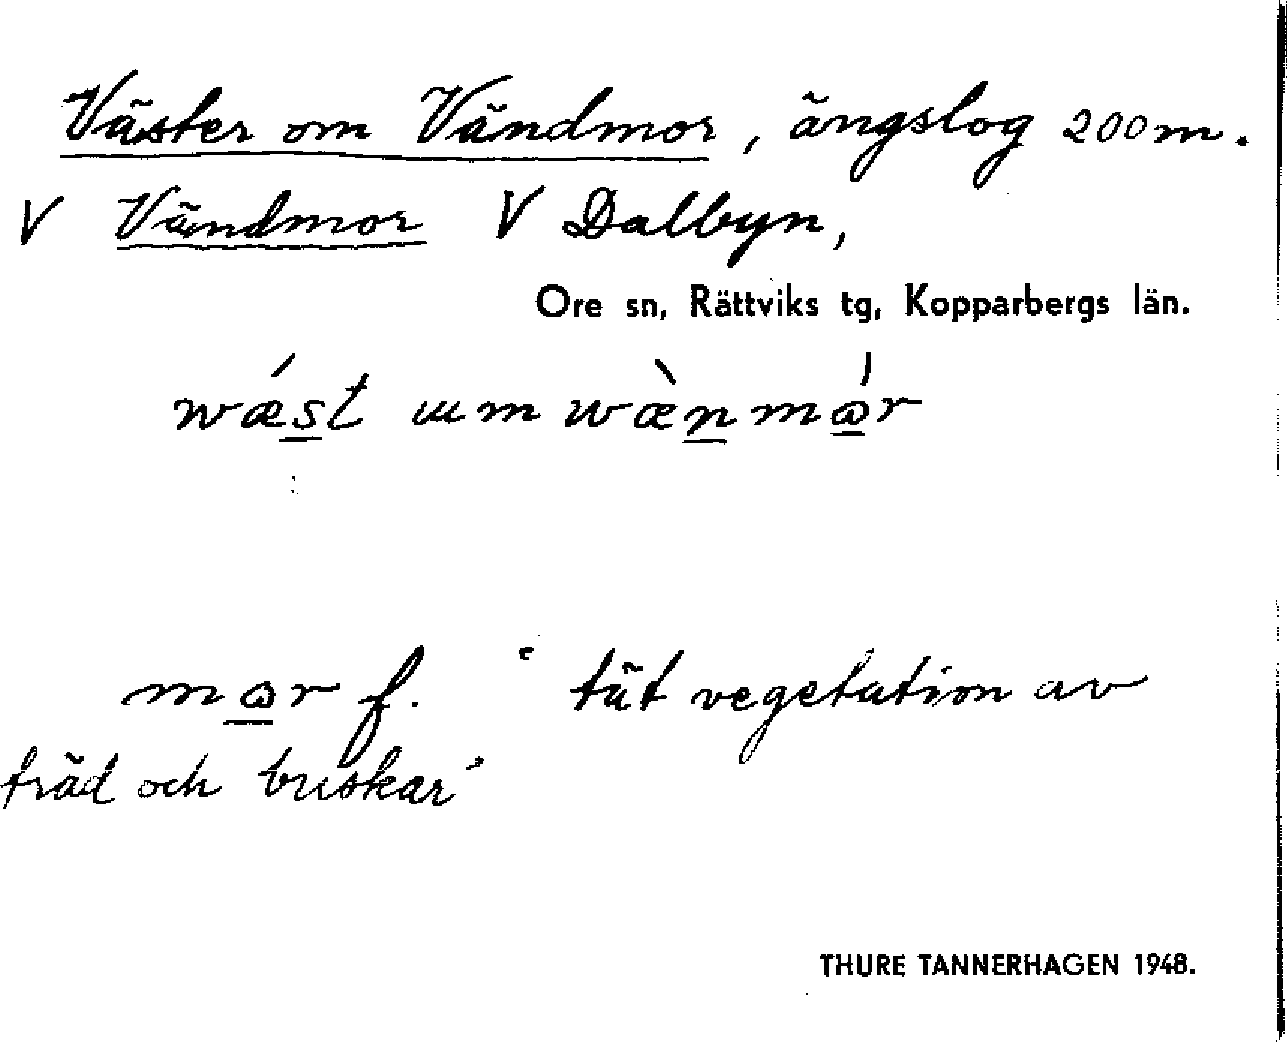 Väster om Vändmor, ängslog 200 m.
V Vändmor V Dalbyn,
Ore sn, Rättviks tg, Kopparbergs län.
wǽst um wæ̀nmɷ̀r
mɷr f. ‘tät vegetation av
träd och buskar’
THURE TANNERHAGEN 1948.